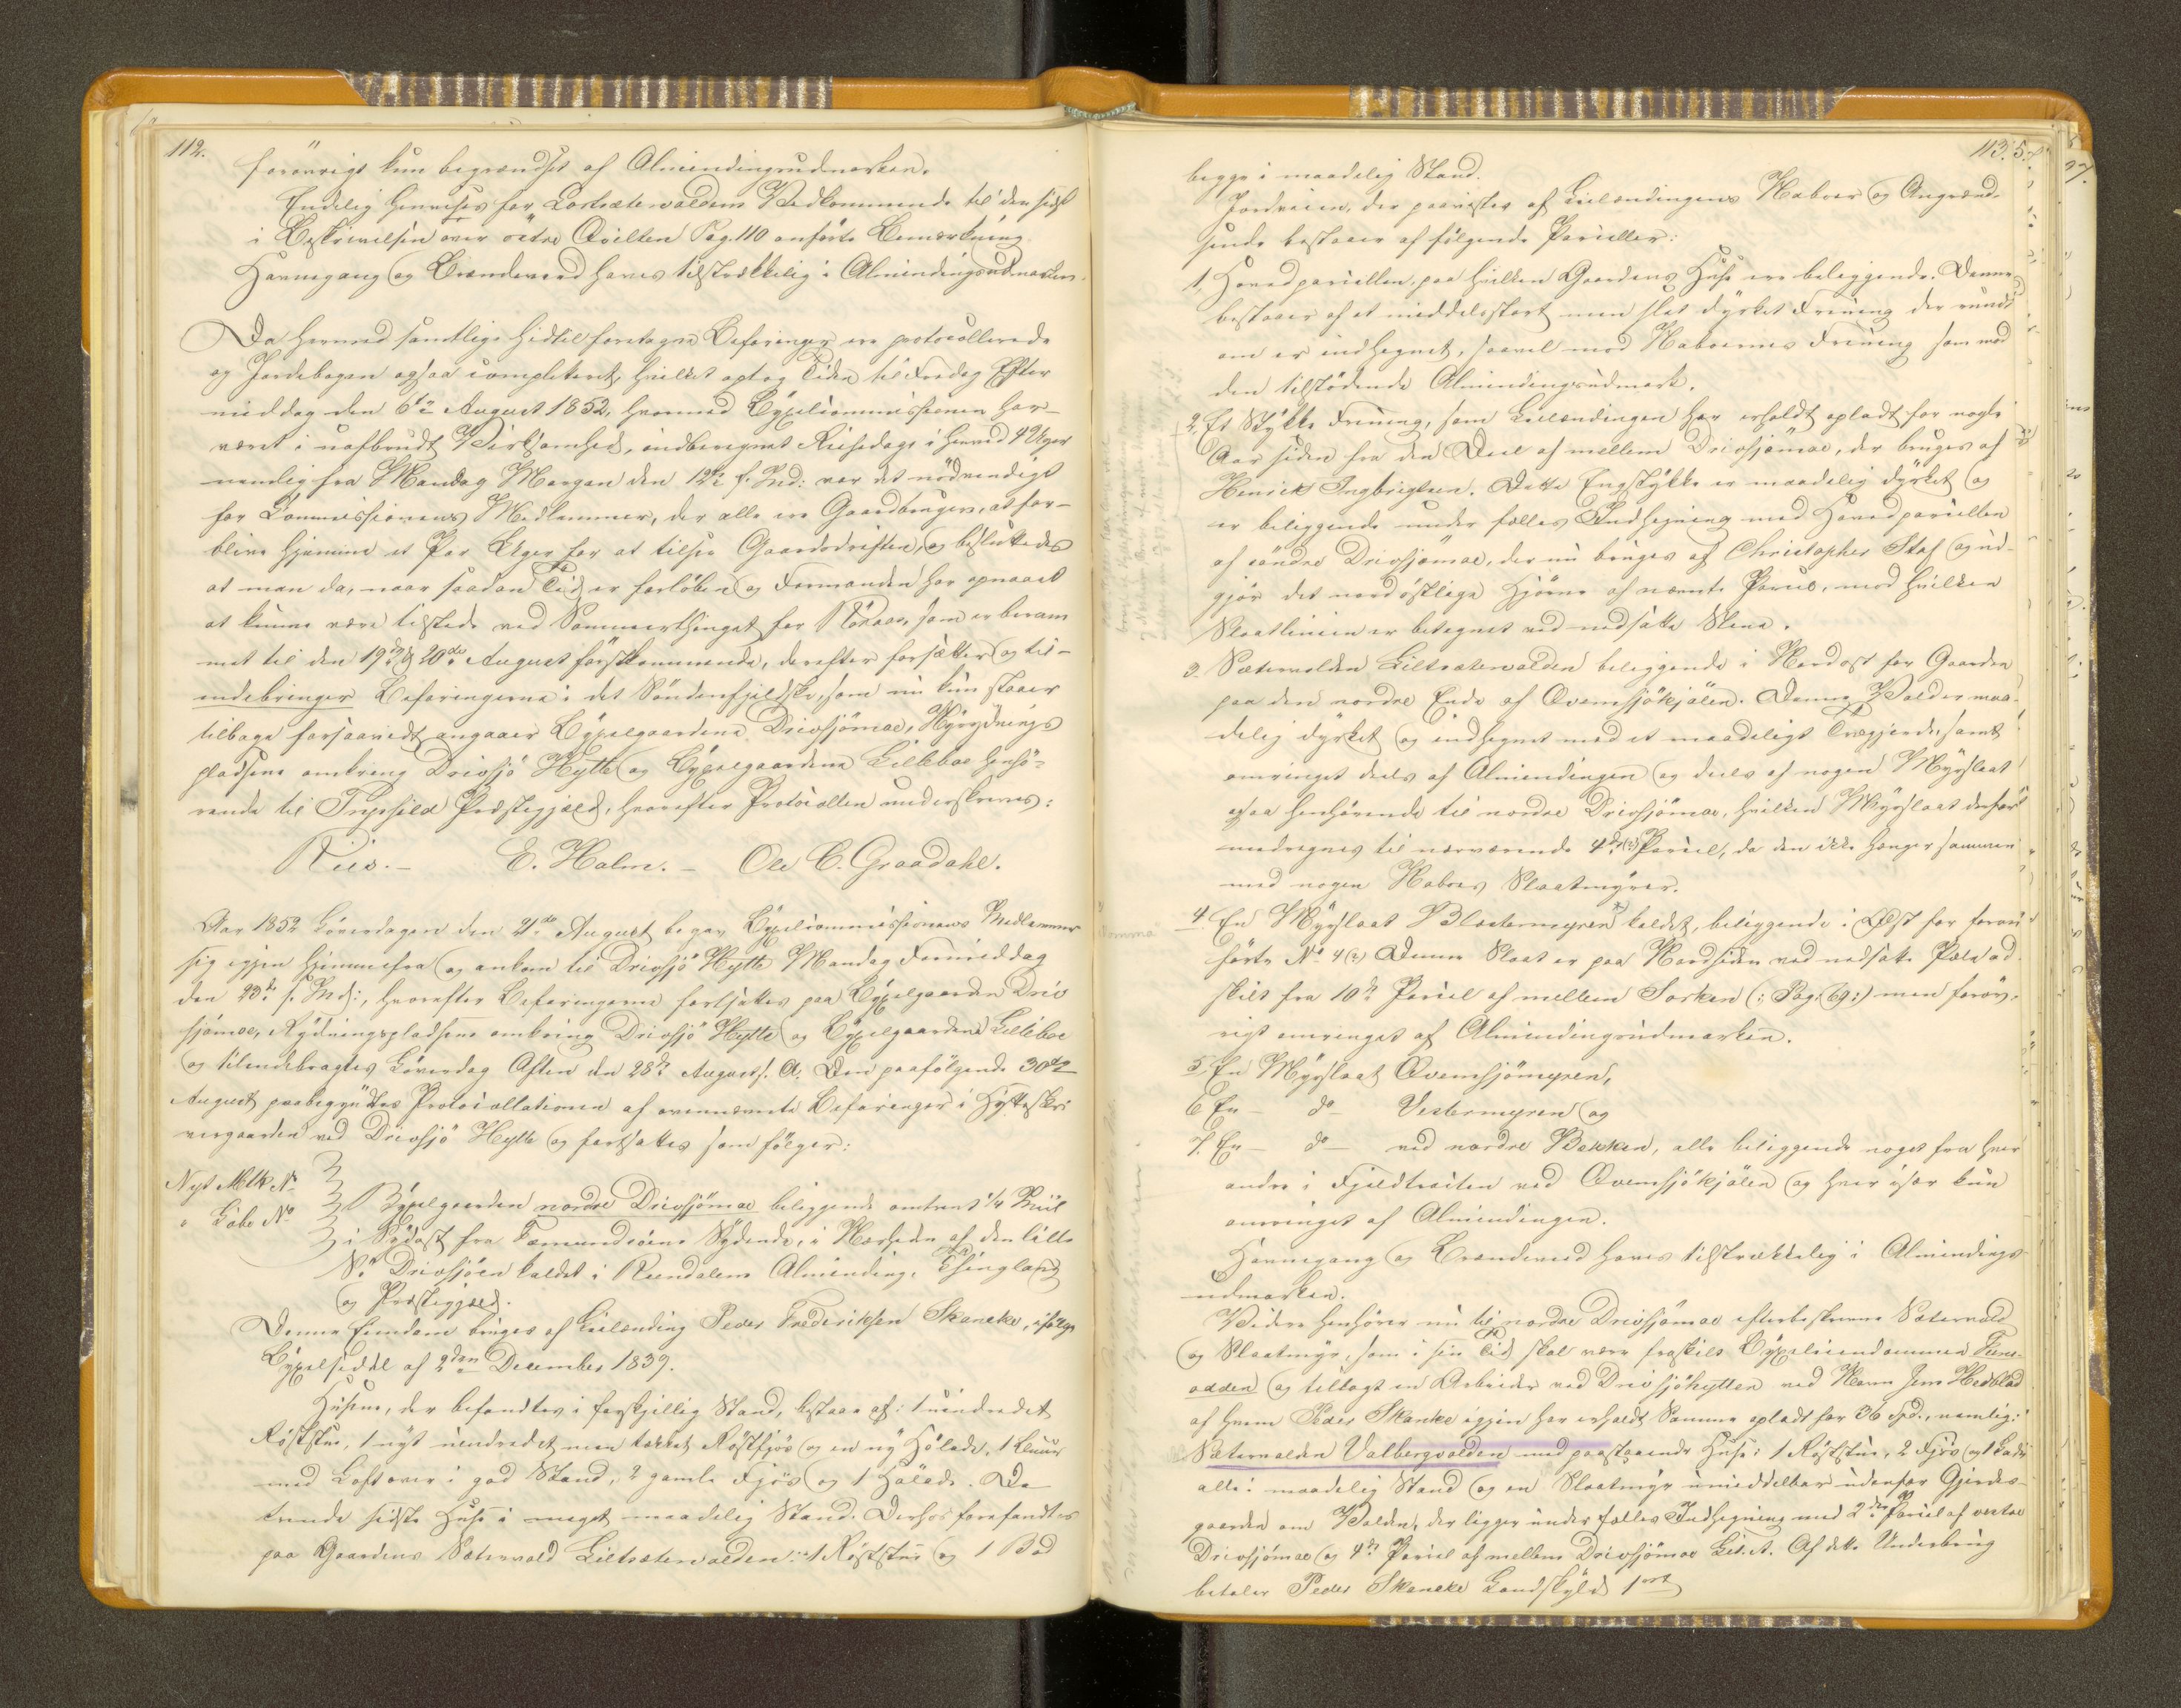 112.
forøvrigt kun begrændset af Almindingsudmarken.
Endelig henvises for Lortsætervoldens Vedkommende til den sidst
i Beskrivelsen over östre Qvilten Pag. 110 anførte Bemærkning
Havnegang og Brændeved haves tilstrækkelig i Almindingsudmarken.
Da hermed samtlige hidtil foretagne Befaringer ere protocollerede
og Jordebogen ogsaa completeret, hvilket optog Tiden til Fredag Efter
middag den 6te August 1852, hvormed Byxelcommissionen har
været i uafbrudt Virksomhed, indberegnet Reisedage i henved 4 Uger
nemlig fra Mandag Morgen den 12te f. Md: var det nødvendigt
for Commissionens Medlemmer, der alle ere Gaardbrugere, at for-
blive hjemme et Par Uger for at tilsee Gaardsdriften, og besluttedes
at man da, naar saadan Tid er forløben og Formanden har opnaaet
at kunne være tilstede ved Sommerthinget for Röraas, som er beram
met til den 19de og 20de August førstkommende, derefter fortsætter og til-
endebringer Befaringerne i det Söndenfjeldske, som nu kun staaer
tilbage forsaavidt angaaer Byxelgaardene Drevsjömoe, Nyrydnings
pladsene omkring Drevsjö Hytte og Byxelgaardene Lilleboe henhö-
rende til Trysild Præstegjeld, hvorefter Protocollen underskrives:
Ries. - E. Holm. - Ole C. Graadahl.
Aar 1852 Löverdagen den 21de August begav Byxelcommissionens Medlemmer
sig igjen hjemmefra og ankom til Drevsjö Hytte Mandag Formiddag
den 23de s. Md:, hvorefter Befaringerne fortsattes paa Byxelgaarden Drev
sjömoe, Rydningspladsene omkring Drevsjö Hytte og Byxelgaardene Lilleboe
og tilendebragtes Löverdag Aften den 28de August s. A. Den paafölgende 30te
August paabegyndtes Protocollationen af ovennævnte Befaringer i Hytteskri
vergaarden ved Drevsjö Hytte og fortsattes som følger:
Nyt Mtk No
" Löbe No
Byxelgaarden nordre Drevsjömoe beliggende omtrent 1/4 Miil
i Sydost fra Fæmundsöens Sydende, i Nærheden af den lille
Sö Drevsjöen kaldet i Rendalens Alminding, Thinglaug
og Præstegjeld.
Denne Eiendom bruges af Leilænding Peder Frederiksen Skancke, ifølge
Byxelseddel af 2den December 1839.
Husene, der befandtes i forskjellig Stand, bestaae af: 1 uindredet
Röststue, 1 nyt uindredet men tækket Röstfjös og en ny Hölade, 1 Buur
med Loft over i god Stand, 2 gamle Fjös og 1 Hölade. De
trende sidste Huse i meget maadelig Stand. Derhos forefandtes
paa Gaardens Sætervold Liltsætervolden: 1 Röststue og 1 Bod
113.
begge i maadelig Stand.
Jordveien, der paavistes af Leilændingens Naboer og Angrænd-
sende bestaaer af følgende Parceller:
1, Hovedparcellen, paa hvilken Gaardens Huse ere beliggende. Denne
bestaaer af et middelsstort men slet dyrket Eeneng der rundt
om er indhegnet, saavel mod Naboernes Eeneng som mod
den tilstödende Almindingsudmark.
2. Et Stykke Eeneng, som Leilændingen har erholdt opladt for nogle
Aar siden fra den Deel af mellem Drevsjömoe, der bruges af
Henrick Ingbrigtsen. Dette Engstykke er maadelig dyrket og
er beliggende under fælles Indhegning med Hovedparcellen
af söndre Drevsjömoe, der nu bruges af Christopher Staf og ud-
gjör det nordöstlige Hjörne af nævnte Parcel, mod hvilken
Slaatlinien er betegnet ved nedsatte Stene.
3. Sætervolden Liltsætervolden beliggende i Nordost for Gaarden
paa den nordre Ende af Qvemsjökjölen. Denne Vold er maa-
delig dyrket og indhegnet med et maadeligt Trægjerde, samt
omringet deels af Almindingen og deels af nogen Myrslaat
ogsaa henhörende til nordre Drevsjömoe, hvilken Myrslaat derfor
medregnes til nærværende 4de (3) Parcel, da den ikke hænger sammen
med nogen Naboes Slaatmyrer.
4 En Myrslaat Blostermyren kaldet, beliggende i Öst for foran
förte No 4 (3) Denne Slaat er paa Nordsiden ved nedsatte Pæle ad-
skilt fra 10de Parcel af mellem Sorken (: Pag: 69 :) men forøv-
rigt omringet af Almindingsudmarken.
5, En Myrslaat Qvemsjömyren,
6 En - do - Vestermyren og
7. En - do - ved nordre Bakken, alle beliggende noget fra hver
andre i Fjeldtracten ved Qvemsjökjölen og hver især kun
omringet af Almindingen.
Havnegang og Brændeved haves tilstrækkelig i Almindings
udmarken.
Videre henhörer nu til nordre Drevsjömoe efterbeskrevne Sætervold
og Slaatmyr, som i sin Tid skal være fraskilt Byxeleiendommen
odden og tillagt en Arbeider ved Drevsjöhytten ved Navn Jens Hedblad
af hvem Peder Skancke igjen har erholdt Samme opladt for 36 Spd., nemlig:
Sætervolden Valbergvolden med paastaaende Huse: 1 Röststue, 2 Fjös og 1 Lade
alle i maadelig Stand og en Slaatmyr umiddelbar udenfor Gjerdes-
gaarden om Volden, der ligger under fælles Indhegning med 2den Parcel af vestre
Drevsjömoe og 4de Parcel af mellem Drevsjömoe Lit. A. Af dette Underbrug
betaler Peder Skancke Landskyld 1 ort